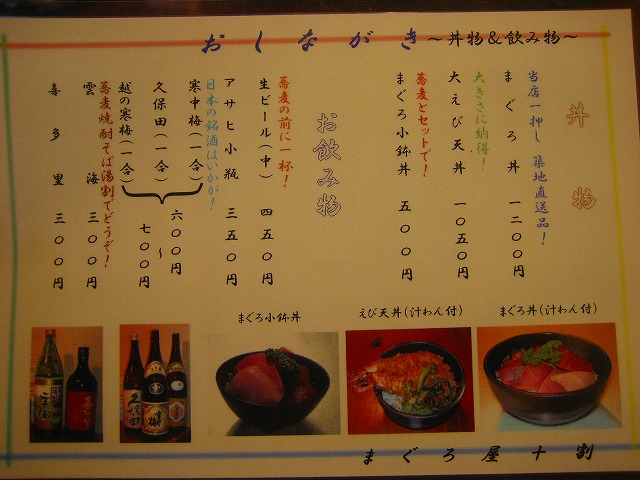 おしながき～丼物＆飲み物～
丼物
当店一押し 築地直送品！
まぐろ丼 一二〇〇円
大きさに納得！
大えび天丼 一〇五〇円
蕎麦とセットで！
まぐろ小鉢丼 五〇〇円
お飲み物
蕎麦の前に一杯！
生ビール（中） 四五〇円
アサヒ小瓶 三五〇円
日本の銘酒はいかが！
寒中梅（一合）
久保田（一合）
越の寒梅（一合）
六〇〇円～七〇〇円
蕎麦焼酎そば湯割でどうぞ！
雲海 三〇〇円
喜多里 三〇〇円
まぐろ丼（汁わん付）
えび天丼（汁わん付）
まぐろ小鉢丼
久保田
まぐろ屋十割